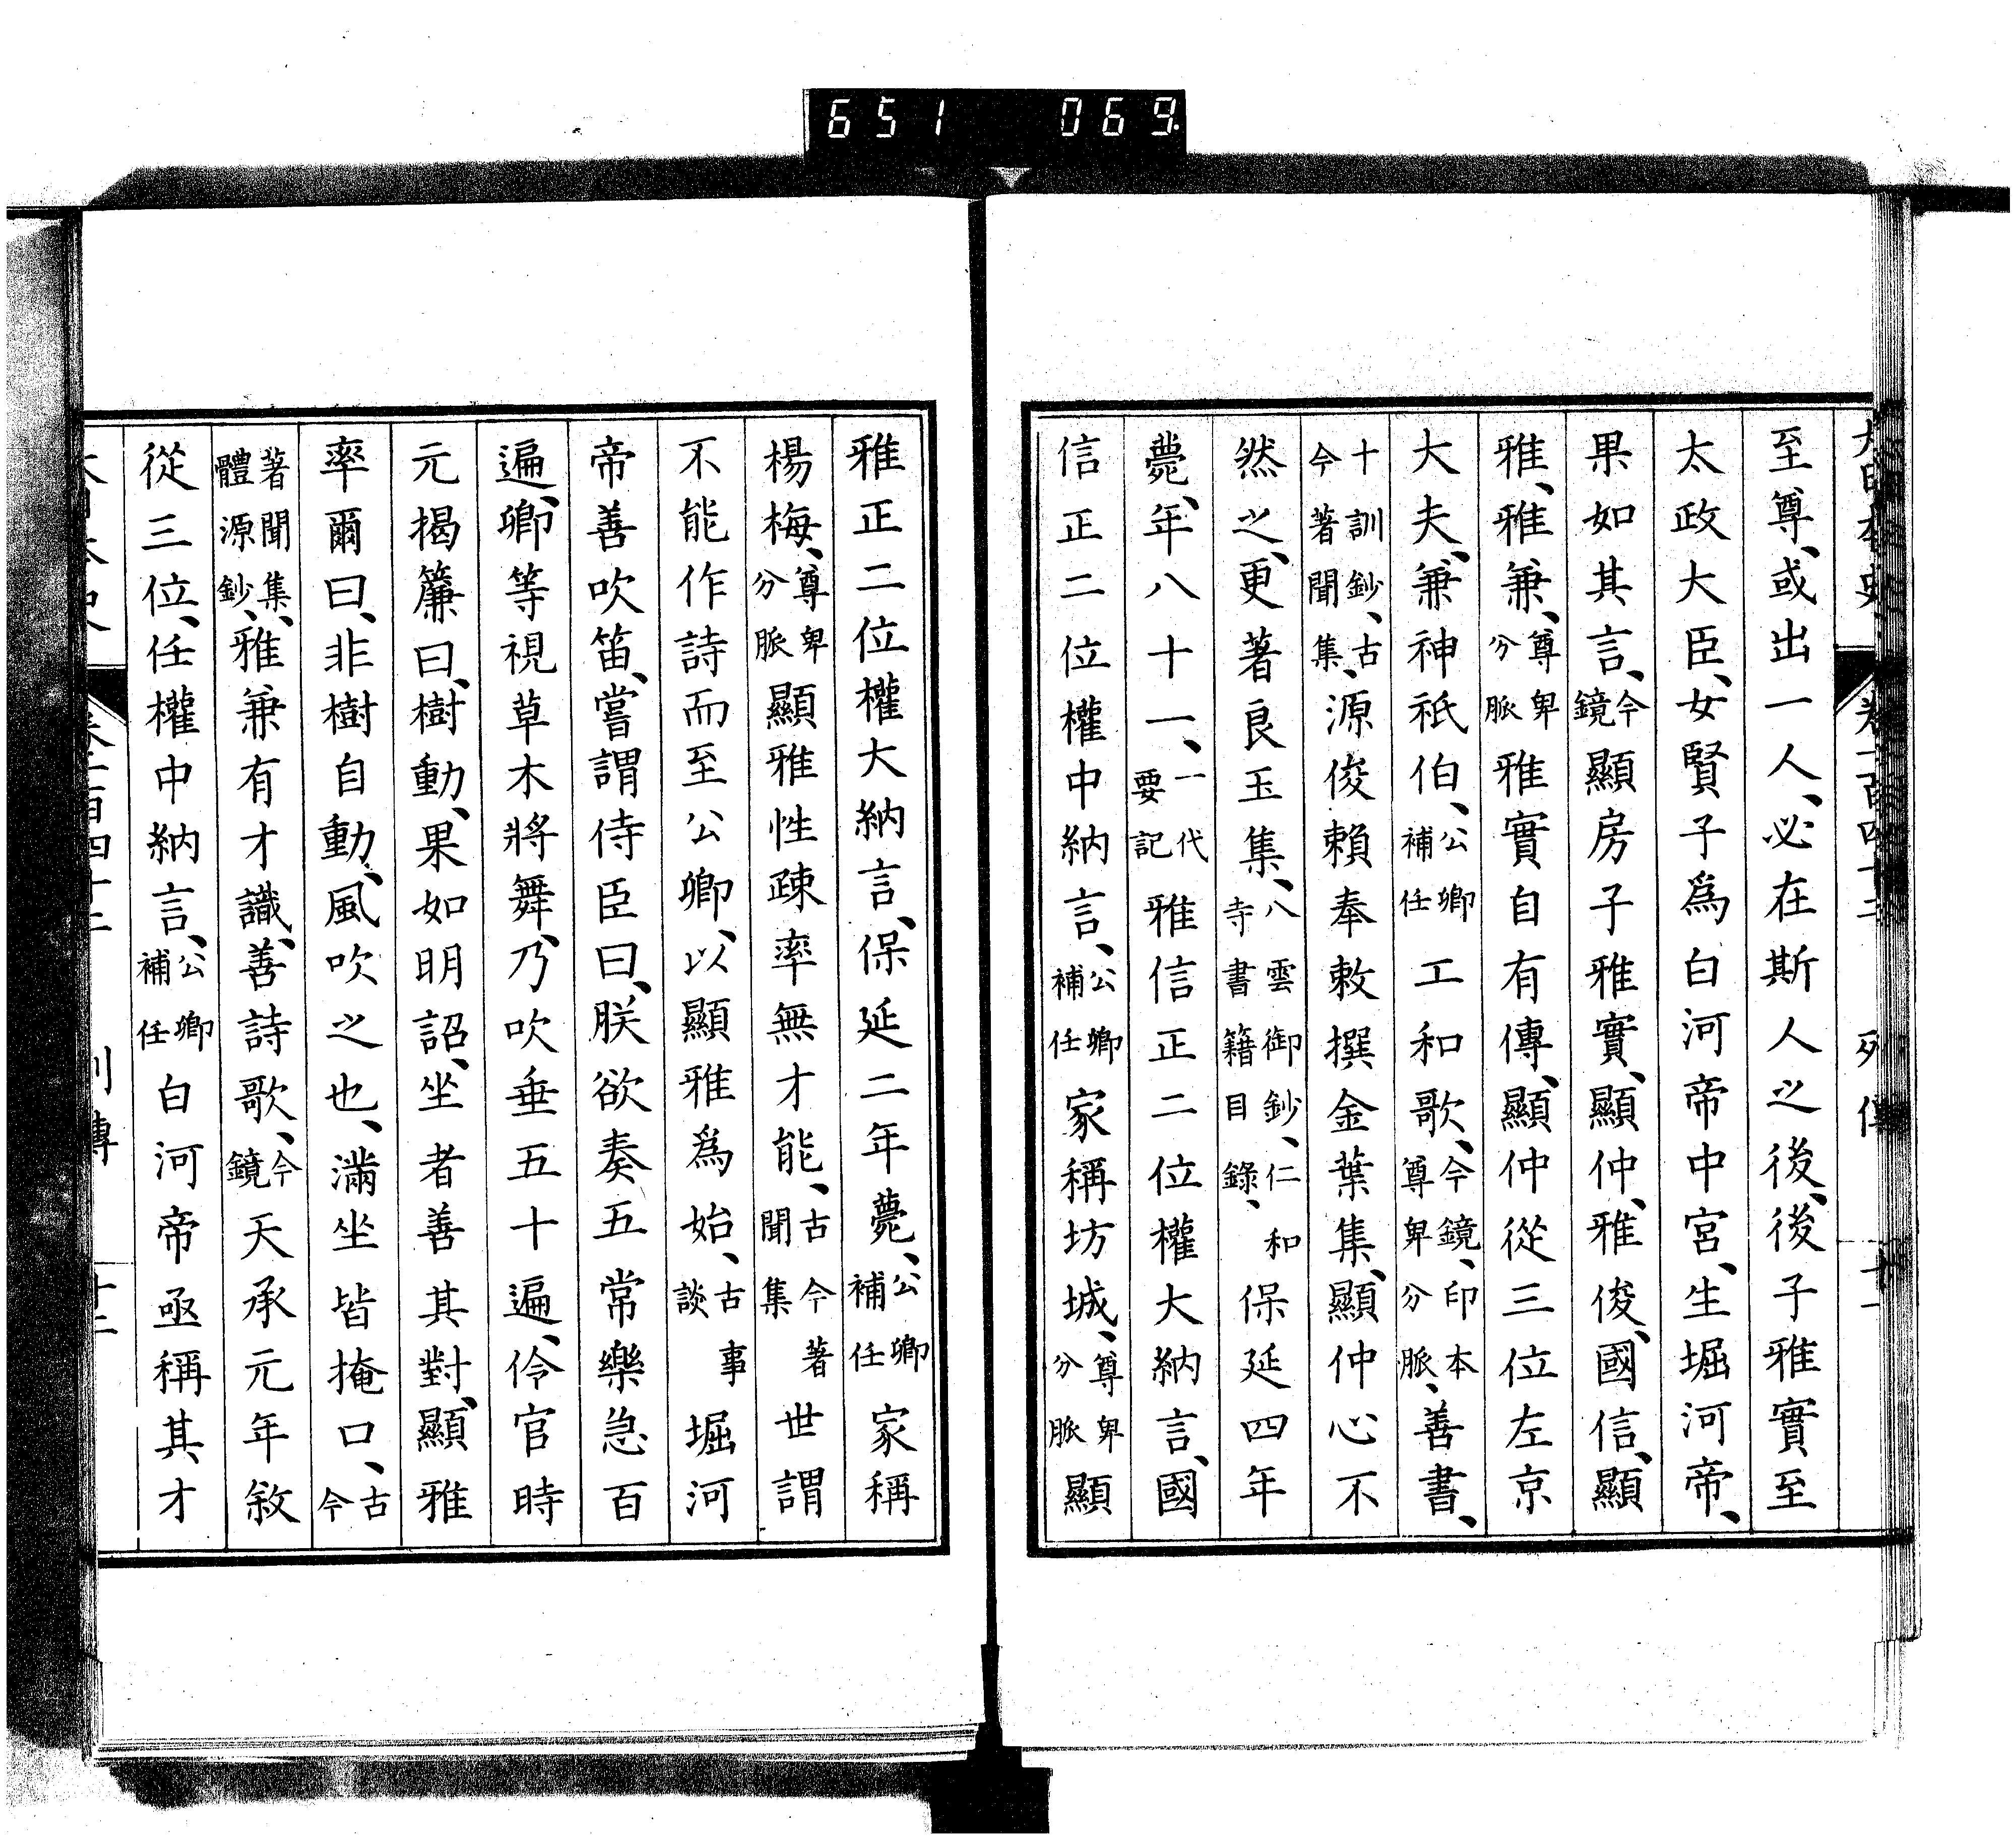 651 069
至尊、或出一人、必在斯人之後、後子雅實至
太政大臣、女賢子爲白河帝中宮、生堀河帝、
果如其言、今鏡顯房子雅實、顯仲、雅俊、國信、顯
雅、雅兼、尊卑分脈雅實自有傳、顯仲從三位左京
大夫、兼神祇伯、公卿補任工和歌、今鏡、印本尊卑分脈、善書、
十訓鈔、古今著聞集、源俊賴奉敕撰金葉集、顯仲心不
然之、更著良玉集、八雲御鈔、仁和寺書籍目錄、保延四年
薨、年八十一、一代要記雅信正二位權大納言、國
信正二位權中納言、公卿補任家稱坊城、尊卑分脈顯
雅正二位權大納言、保延二年薨、公卿補任家稱
楊梅、尊卑分脈顯雅性疎率無才能、古今著聞集世謂
不能作詩而至公卿、以顯雅爲始、古事談堀河
帝善吹笛、嘗謂侍臣曰、朕欲奏五常樂急百
遍、卿等視草木將舞、乃吹垂五十遍、伶官時
元揭簾曰、樹動、果如明詔、坐者善其對、顯雅
率爾曰、非樹自動、風吹之也、滿坐皆掩口、古今
著聞集、體源鈔、雅兼有才識、善詩歌、今鏡天承元年敘
從三位、任權中納言、公卿補任白河帝亟稱其才